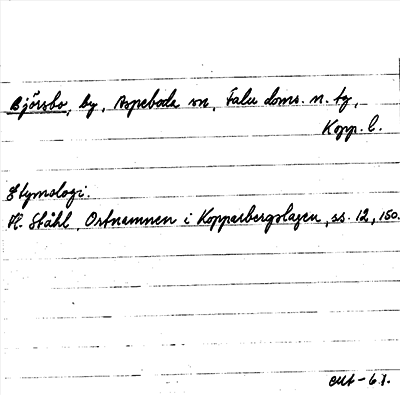 Björsbo, by, Aspeboda sn, Falu doms. n. tg,
Kopp. l.
Etymologi:
H. Ståhl, Ortnamnen i Kopparbergslagen, ss. 12, 150.
-61.